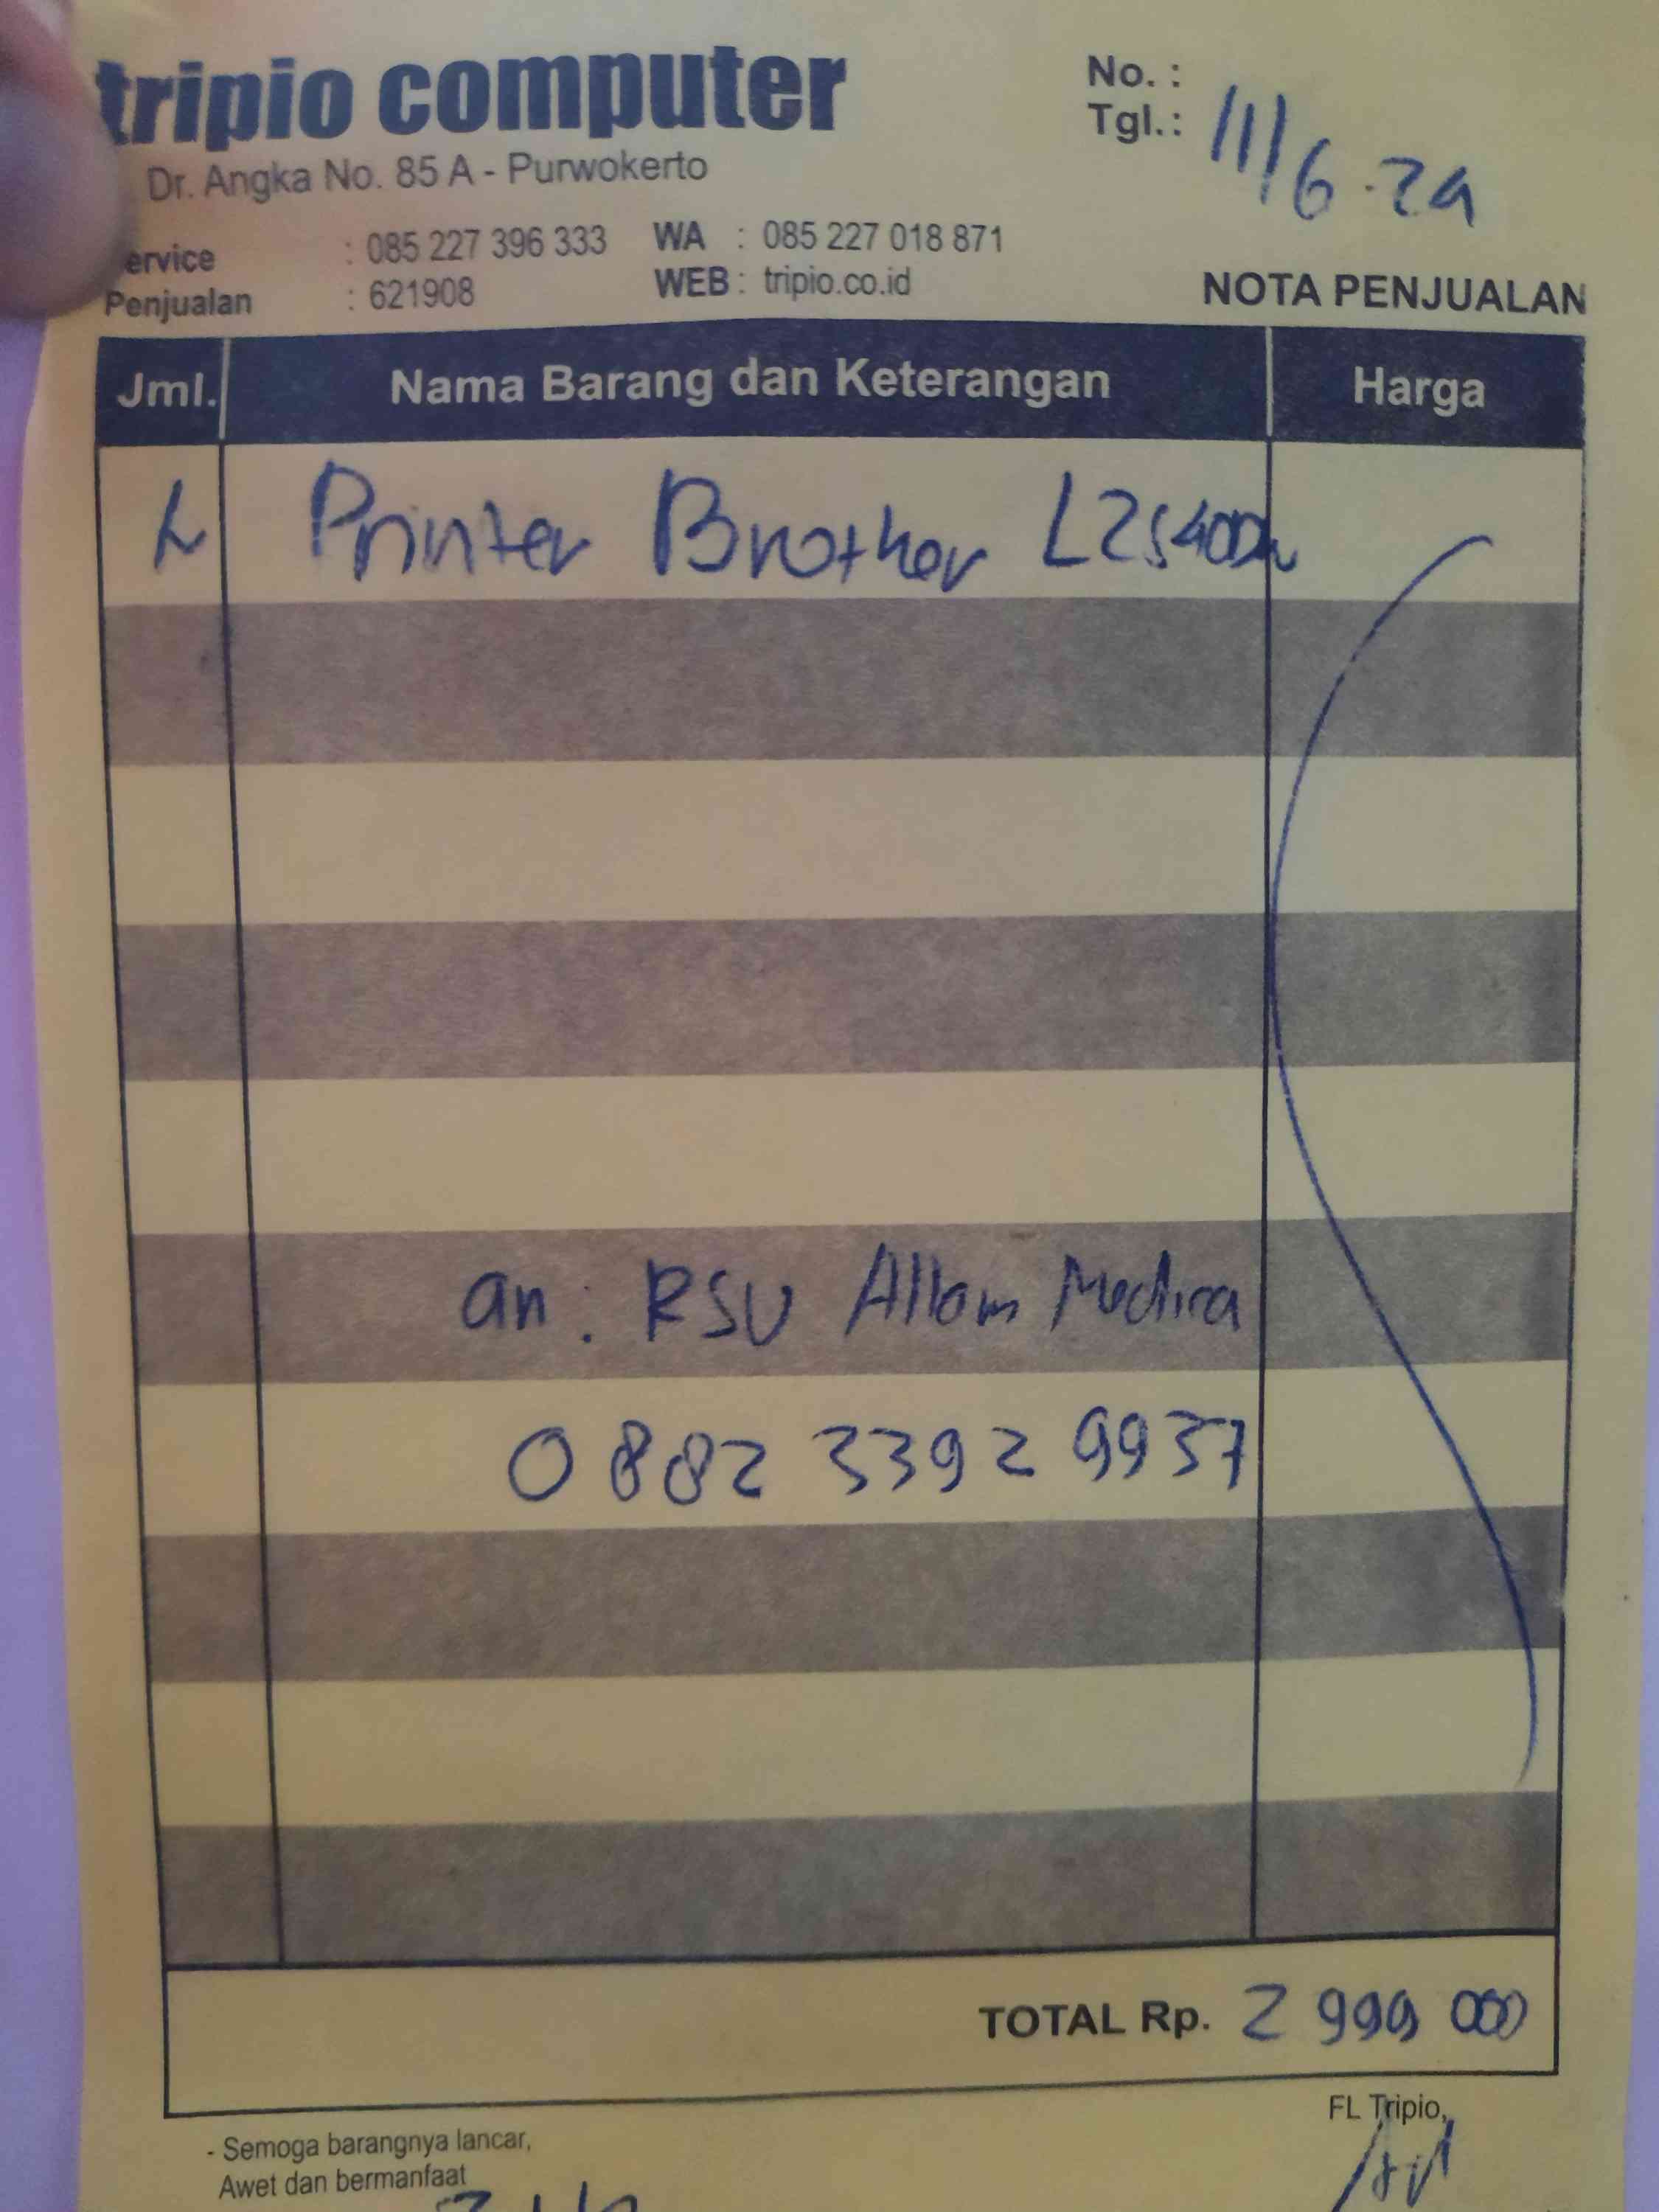 tripio computer
No. :
Tgl.: 11/6-24
Dr. Angka No. 85 A - Purwokerto
ervice : 085 227 396 333 WA : 085 227 018 871
Penjualan : 621908 WEB : tripio.co.id
NOTA PENJUALAN
Jml. Nama Barang dan Keterangan Harga
Printer Brother L2540DW
an : RSU Allam Medica
0882 3392 9937
TOTAL Rp. 2 999 000
FL Tripio,
- Semoga barangnya lancar,
Awet dan bermanfaat